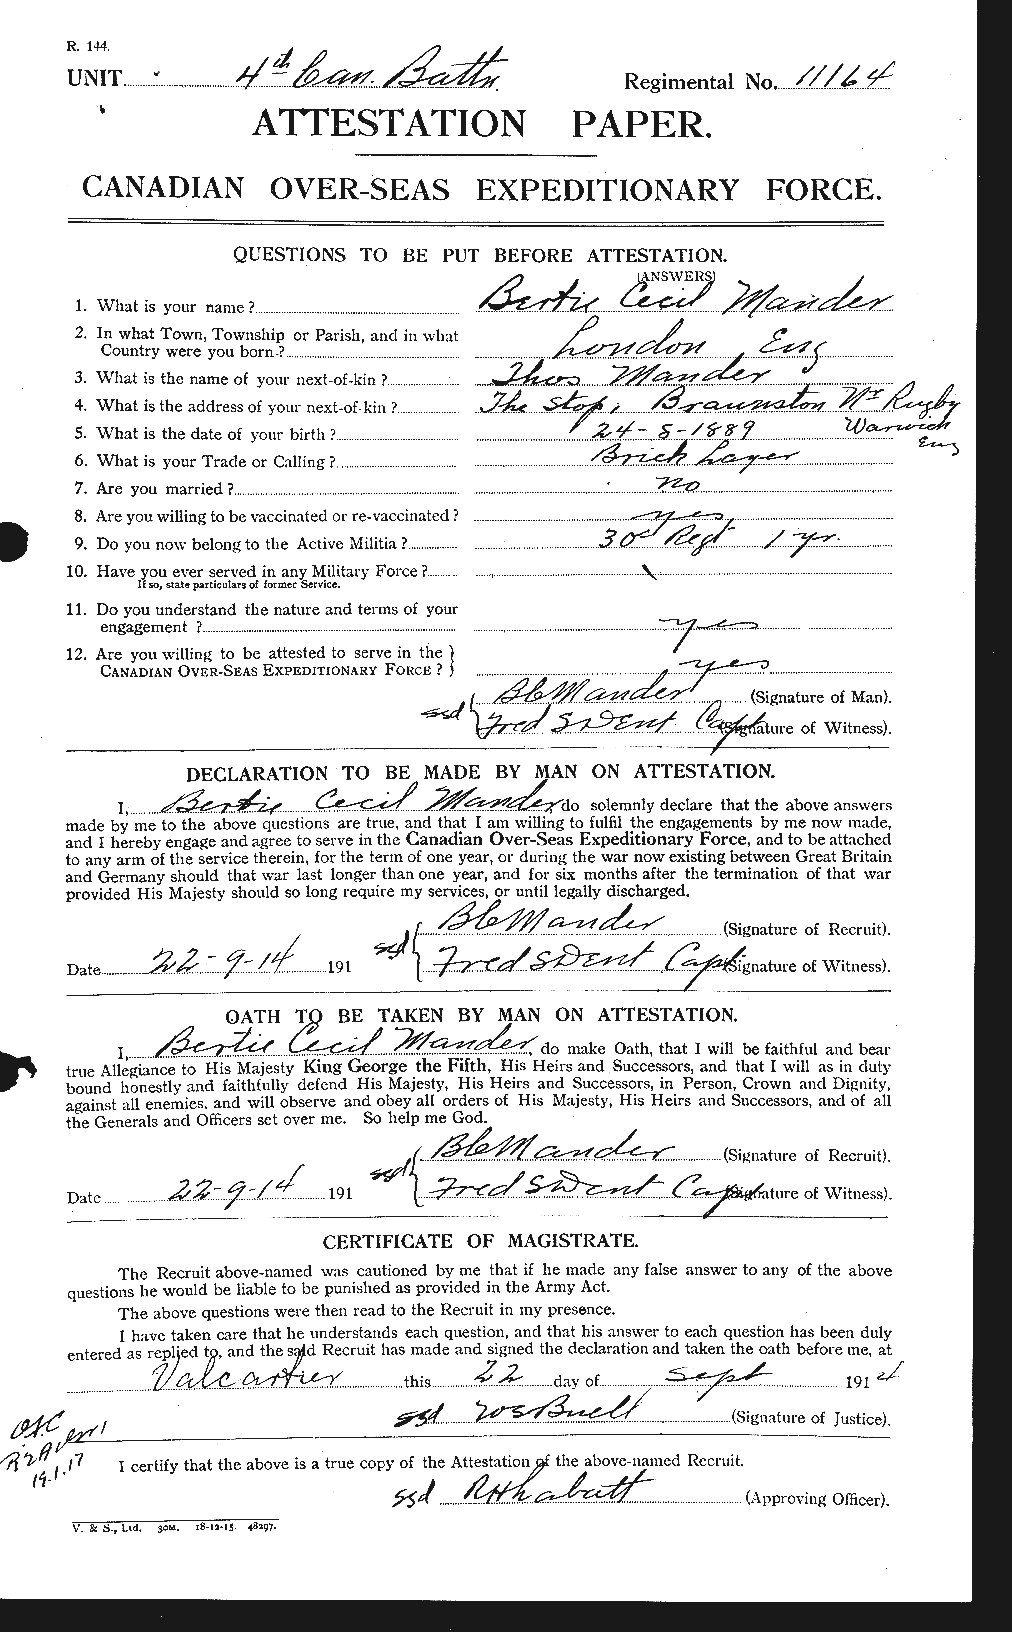 R. 144.
UNIT. 4th Can. Battn. Regimental No. 11164
ATTESTATION PAPER.
CANADIAN OVER-SEAS EXPEDITIONARY FORCE.
QUESTIONS TO BE PUT BEFORE ATTESTATION.
(ANSWERS)
1. What is your name? Bertie Cecil Mander
2. In what Town, Township or Parish, and in what
Country were you born? London, Eng
3. What is the name of your next-of-kin? Thos Mander
4. What is the address of your next-of-kin? The Stop, Braunston Nr Rugby
Warwick
Eng
5. What is the date of your birth? 24-8-1889
6. What is your Trade or Calling? Brick Layer
7. Are you married? no
8. Are you willing to be vaccinated or re-vaccinated? yes
9. Do you now belong to the Active Militia? 30 Regt 1 yr.
10. Have you ever served in any Military Force? \
If so, state particulars of former Service.
11. Do you understand the nature and terms of your
engagement? yes
12. Are you willing to be attested to serve in the
CANADIAN OVER-SEAS EXPEDITIONARY FORCE? yes
BC Mander (Signature of Man).
sgd Fred S Dent Capt (Signature of Witness).
DECLARATION TO BE MADE BY MAN ON ATTESTATION.
I, Bertie Cecil Mander do solemnly declare that the above answers
made by me to the above questions are true, and that I am willing to fulfil the engagements by me now made,
and I hereby engage and agree to serve in the Canadian Over-Seas Expeditionary Force, and to be attached
to any arm of the service therein, for the term of one year, or during the war now existing between Great Britain
and Germany should that war last longer than one year, and for six months after the termination of that war
provided His Majesty should so long require my services, or until legally discharged.
BC Mander (Signature of Recruit).
Date 22-9-14 191 sgd Fred S Dent Capt (Signature of Witness).
OATH TO BE TAKEN BY MAN ON ATTESTATION.
I, Bertie Cecil Mander, do make Oath, that I will be faithful and bear
true Allegiance to His Majesty King George the Fifth, His Heirs and Successors, and that I will as in duty
bound honestly and faithfully defend His Majesty, His Heirs and Successors, in Person, Crown and Dignity,
against all enemies, and will observe and obey all orders of His Majesty, His Heirs and Successors, and of all
the Generals and Officers set over me. So help me God.
BC Mander (Signature of Recruit).
Date 22-9-14 191 sgd Fred S Dent Capt (Signature of Witness).
CERTIFICATE OF MAGISTRATE.
The Recruit above-named was cautioned by me that if he made any false answer to any of the above
questions he would be liable to be punished as provided in the Army Act.
The above questions were then read to the Recruit in my presence.
I have taken care that he understands each question, and that his answer to each question has been duly
entered as replied to, and the said Recruit has made and signed the declaration and taken the oath before me, at
Valcartier this 22 day of Sept 1914
sgd WS Buell (Signature of Justice).
19.1.17
I certify that the above is a true copy of the Attestation of the above-named Recruit.
sgd (Approving Officer).
V. & S., Ltd. 30M. 18-12-15. 48297.